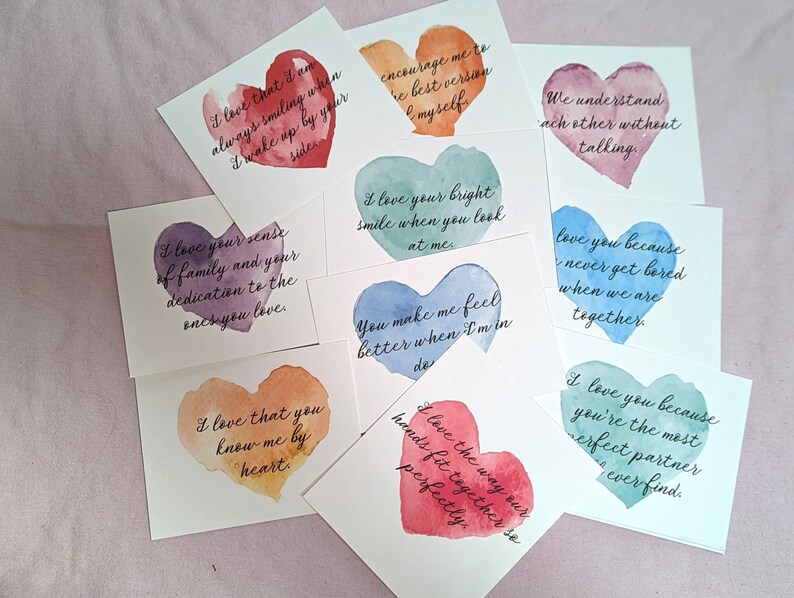 I love that I am
always smiling when
I wake up by your
side.
encourage me to
best version
myself.
We understand
each other without
talking.
I love your bright
smile when you look
at me.
I love your sense
of family and your
dedication to the
ones you love.
love you because
never get bored
when we are
together.
You make me feel
better when I'm in
I love that you
know me by
heart.
I love the way our
hands fit together so
perfectly.
I love you because
you're the most
perfect partner
ever find.